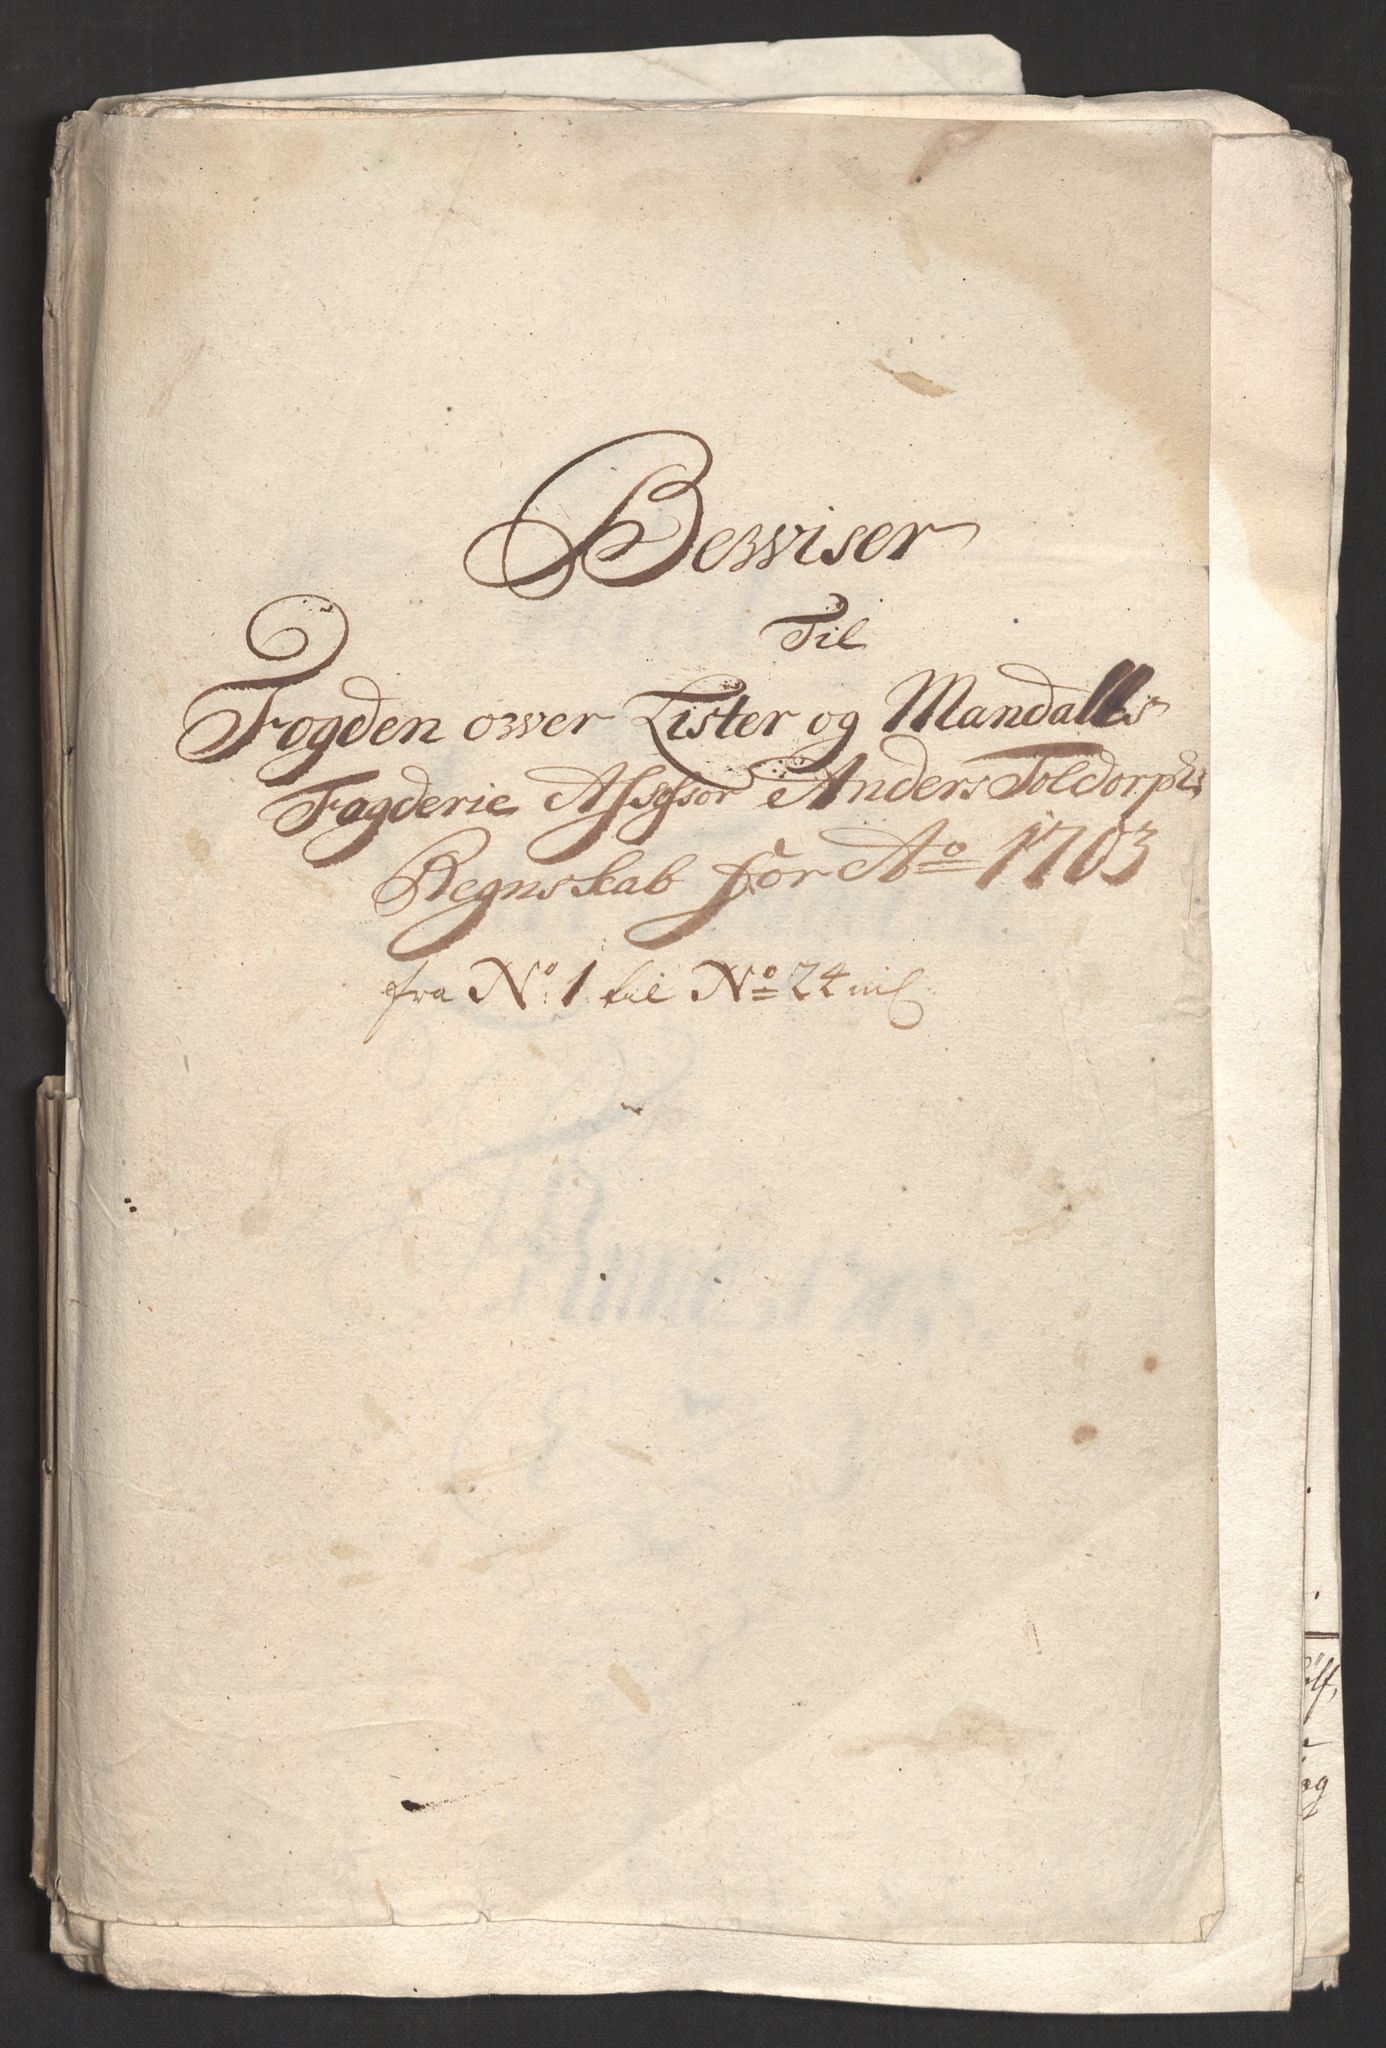 Bewiser
Til
Fogden over Lister og Mandalls
Fogderie Assessor Anders Toldorphs
Regnskab for Ao 1703
fra No 1 til No 24 incl
og